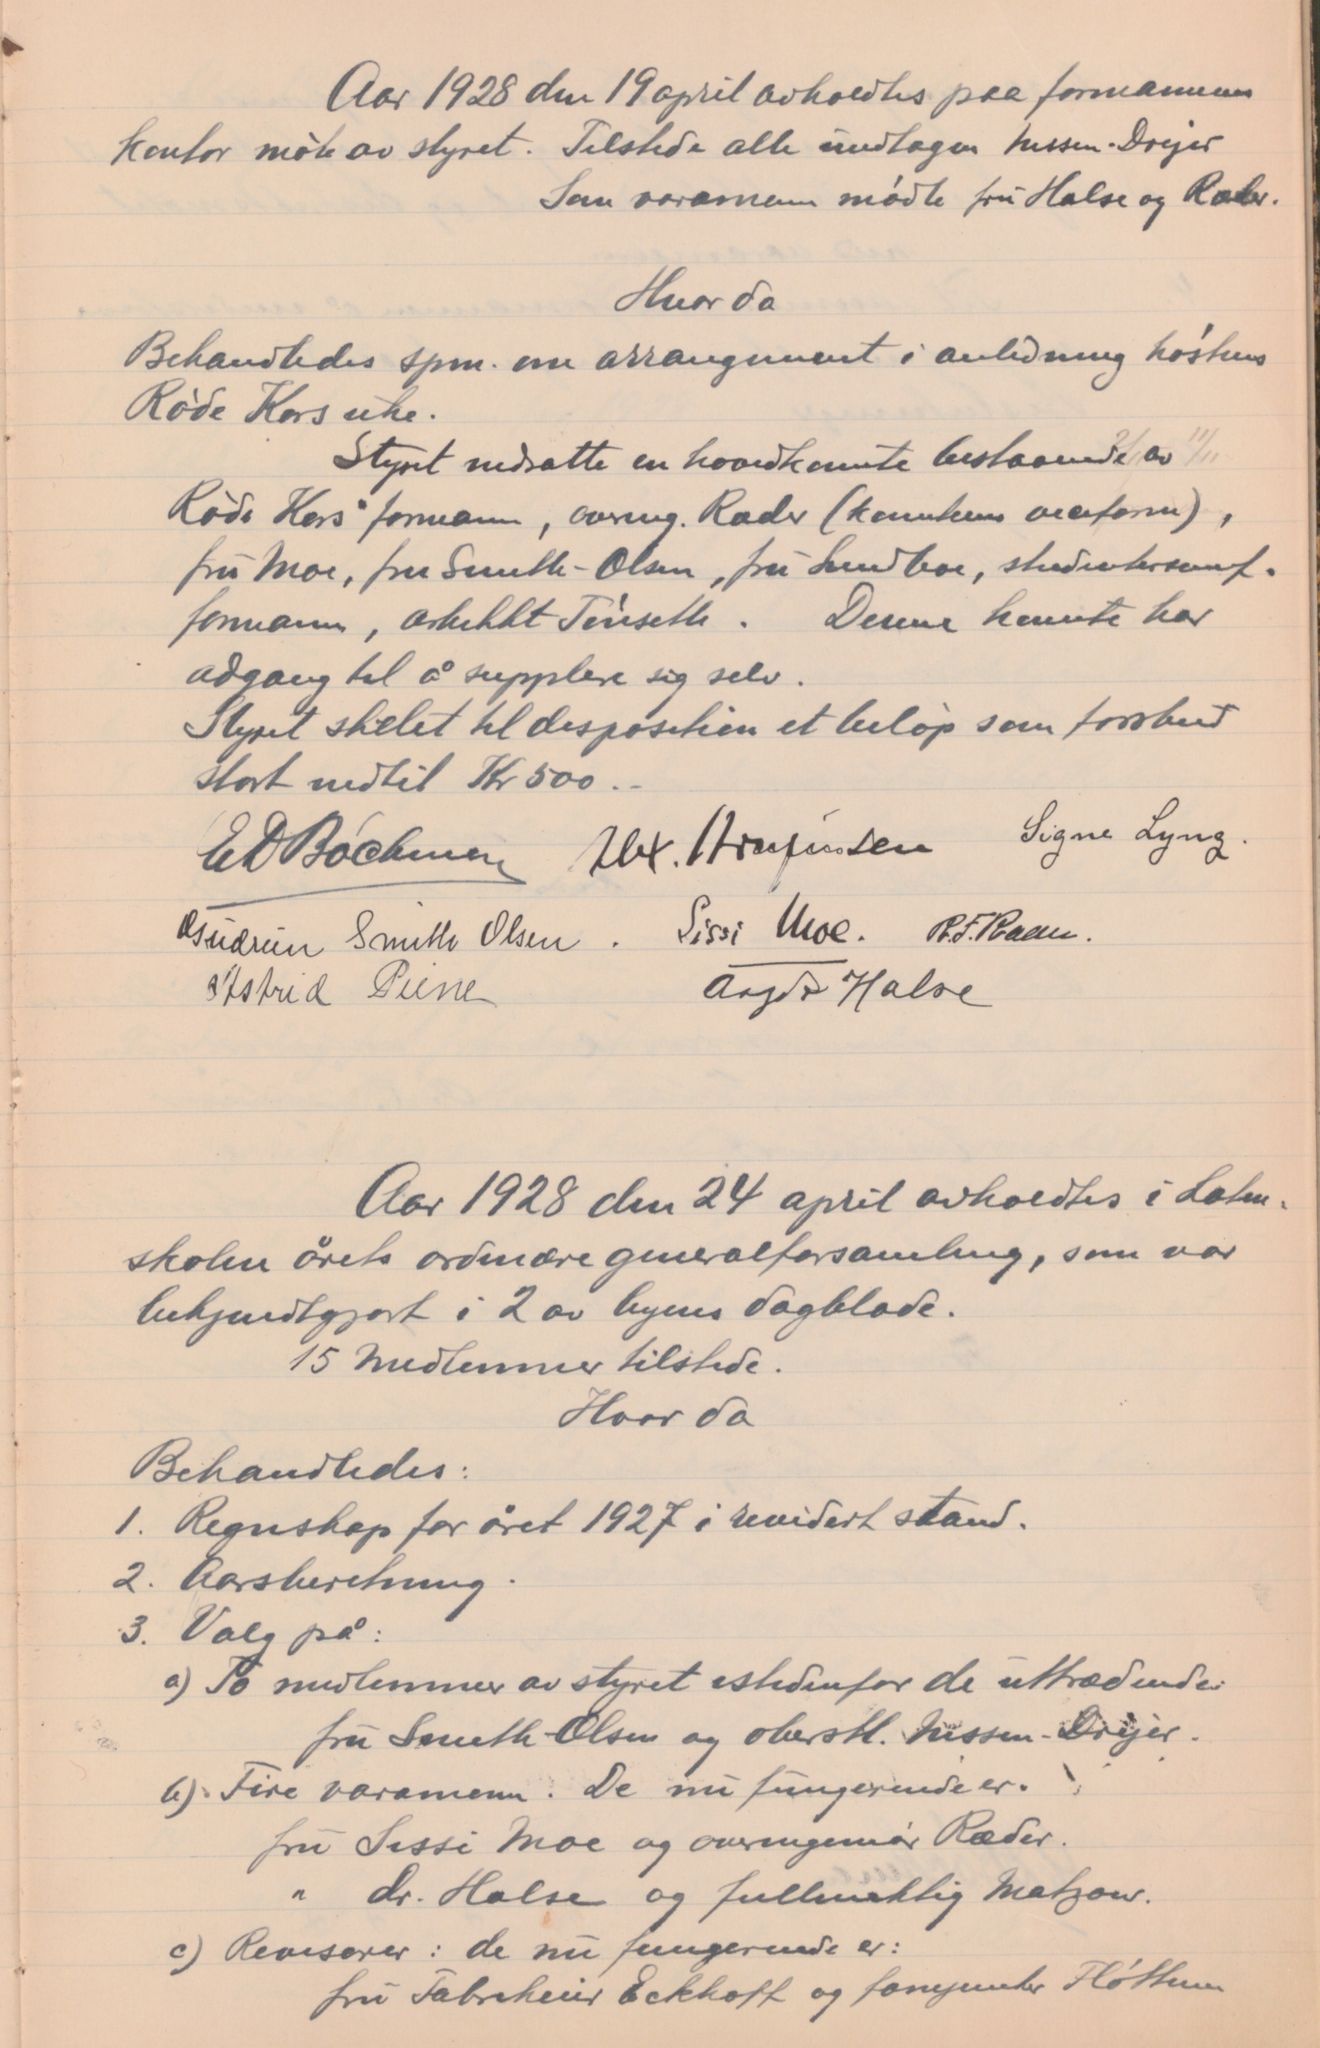 Aar 1928 den 19 april avholdtes paa formannens
kontor møte av styret. Tilstede alle undtagen Nissen-Drejer
Som varamenn møtte fru Halse og Ræder.
Hvor da
Behandledes spm. om arrangement i anledning høstens
Røde Kors uke.
Styret nedsatte en hovedkomite bestaaende av
Røde Kors' formann, overing. Ræder (komiteens viceform),
fru Moe, fru Smith-Olsen, fru Lundboe, studentersamf.
formann, arkitekt Tønseth. Denne komite har
adgang til å supplere sig selv.
Styret stillet til disposition et beløp som forskud
stort indtil Kr 500.-
E D Bøckman Alex. Signe Lyng.
Gudrun Smith Olsen. Sissi Moe. R.F. Ræder.
Astrid Piene Aagot Halse
Aar 1928 den 24 april avholdtes i Latin-
skolen årets ordinære generalforsamling, som var
bekjendtgjort i 2 av byens dagblade.
15 medlemmer tilstede.
Hvor da
Behandledes:
1. Regnskap for året 1927 i revidert stand.
2. Aarsberetning.
3. Valg på:
a) To medlemmer av styret istedenfor de uttrædende:
fru Smith-Olsen og oberstl. Nissen-Drejer.
b) Fire varamenn. De nu fungerende er:
fru Sissi Moe og overingeniør Ræder.
" Dr. Halse og fullmektig Matzow.
c) Revisorer: de nu fungerende er:
fru Fabrikeier Eckhoff og fanejunker Fløttum